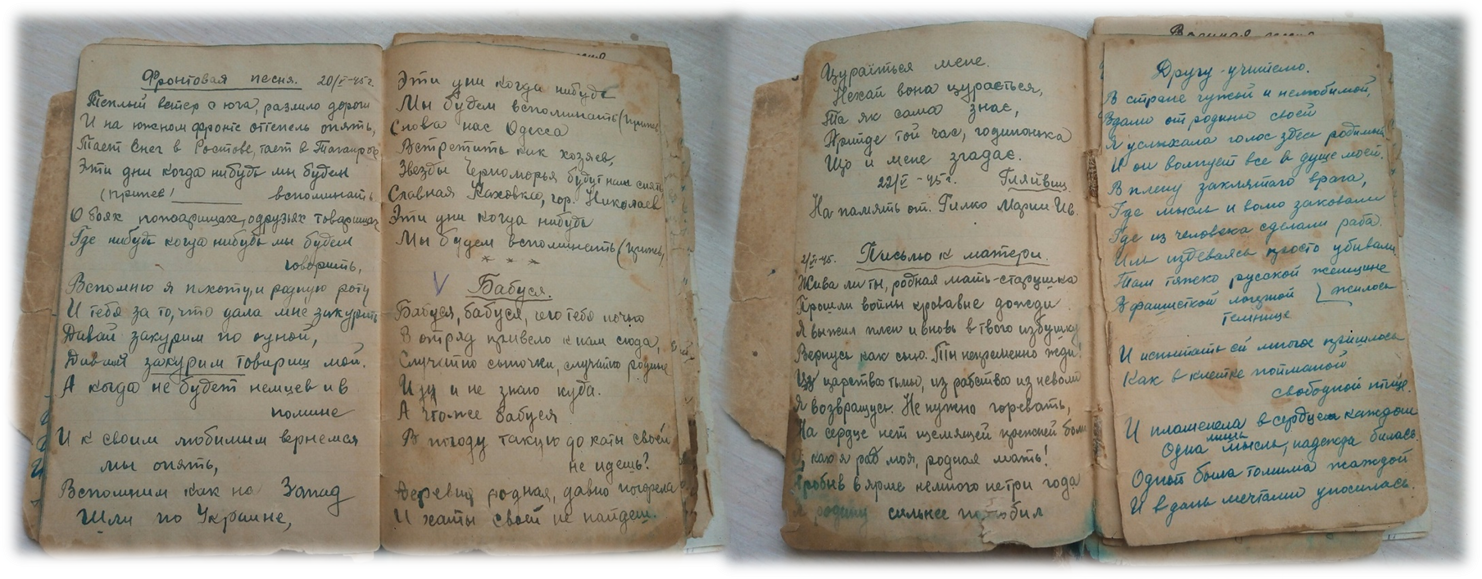 Фронтовая песня. 20/V-45 г.
Теплый ветер с юга, развило дороги
И на южном фронте оттепель опять,
Тает снег в Ростове, тает в Таганроге
Эти дни когда нибудь мы будем
(припев) вспоминать
О боях пожарищах, о друзьях товарищах
Где нибудь когда нибудь мы будем
говорить,
Вспомню я пехоту и родную роту
И тебя за то, что дала мне закурить
Давай закурим по одной,
Давай закурим товарищ мой.
А когда не будет немцев и в
помине
И к своим любимым вернемся
мы опять,
Вспомним как на Запад
Шли по Украине,
Эти дни когда нибудь
Мы будем вспоминать (припев
Снова нас Одесса
Встретить как хозяев,
Звезды Черноморья будут нам сиять
Славная Каховка, гор. Николаев
Эти дни когда нибудь
Мы будем вспоминать (припев,
* * *
V
Бабуся.
Бабуся, бабуся, чего тебе ночью
В отряд привело к нам сюда,
Случайно сыночки, случайно родные
Иду и не знаю куда.
А что-же бабуся
В погоду такую до хаты своей
не идешь?
Деревня родная, давно погорела
И хаты своей не найдешь.
Цураїться мене.
Нехай вона цурається,
Та як сама знає,
Прийде той час, годинонька
Що и мене згадає.
22/V-45 г. Гляйвиц
На память от. Гилко Марии Ив.
2/VI-45. Письмо к матери.
Жива ли ты, родная мать-старушка
Прошли войны кровавые дожди
Я выжил плен и вновь в твою избушку
Вернусь как сыно. Ты непременно жди!
Из царства тьмы, из рабства из неволи
Я возвращусь. Не нужно горевать,
На сердце нет щемящей прежней боли
я раб моя, родная мать!
Пробыв в ярме немного не три года
Я родину сильнее полюбил
Военная
Другу-учителю.
В стране чужой и нелюбимой,
Вдали от родины своей
Я услыхала голос здесь родимый
И он волнует все в душе моей.
В плену заклятого врага,
Где мысль и волю заковали
Где из человека сделали раба
Им издеваясь просто убивали
Там тяжко русской женщине
В фашисткой лагерной } жилось
темнице
И испытать ей многое пришлось
Как в клетке пойманой
свободной птице.
И пламенела в сердцем каждом
Одна лишь мысль, надежда билась.
Одной была томима жаждой
И вдаль мечтами уносилась.